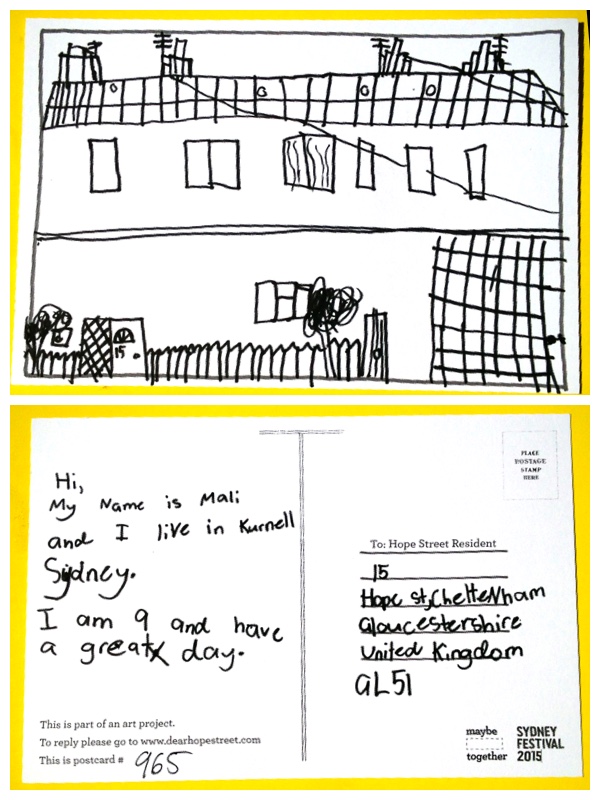 15
Hi,
My Name is Mali
and I live in Kurnell
Sydney.
I am 9 and have
a great day.
This is part of an art project.
To reply please go to www.dearhopestreet.com
This is postcard # 965
PLACE
POSTAGE
STAMP
HERE
To: Hope Street Resident
15
Hope st, Cheltenham
Gloucestershire
United Kingdom
GL51
maybe
together
SYDNEY
FESTIVAL
2015